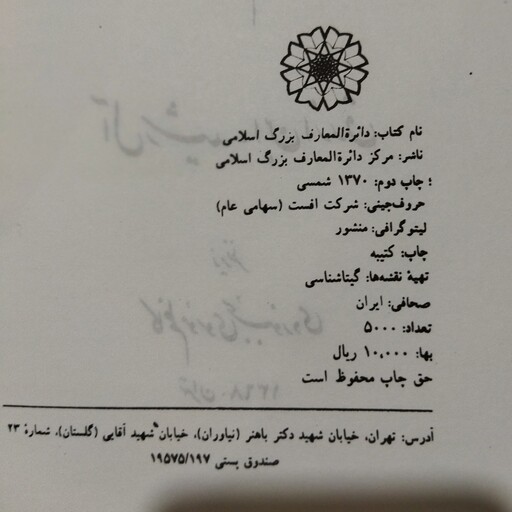 نام کتاب: دائرةالمعارف بزرگ اسلامی
ناشر: مرکز دائرةالمعارف بزرگ اسلامی
؛ چاپ دوم: ۱۳۷۰ شمسی
حروف‌چینی: شرکت افست (سهامی عام)
لیتوگرافی: منشور
چاپ: کتیبه
تهیهٔ نقشه‌ها: گیتاشناسی
صحافی: ایران
تعداد: ۵۰۰۰
بها: ۱۰,۰۰۰ ریال
حق چاپ محفوظ است
آدرس: تهران، خیابان شهید دکتر باهنر (نیاوران)، خیابان شهید آقایی (گلستان)، شمارهٔ ۲۳
صندوق پستی ۱۹۵۷۵/۱۹۷